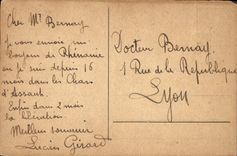 Cher Mr Bernay
Je vous envoie un
bonjour de Rhénanie
où je suis depuis 16
mois dans les Chars
d'Assaut.
Enfin dans 2 mois
la libération.
Meilleur souvenir
Lucien Girard
Docteur Bernay
1 Rue de la République
Lyon